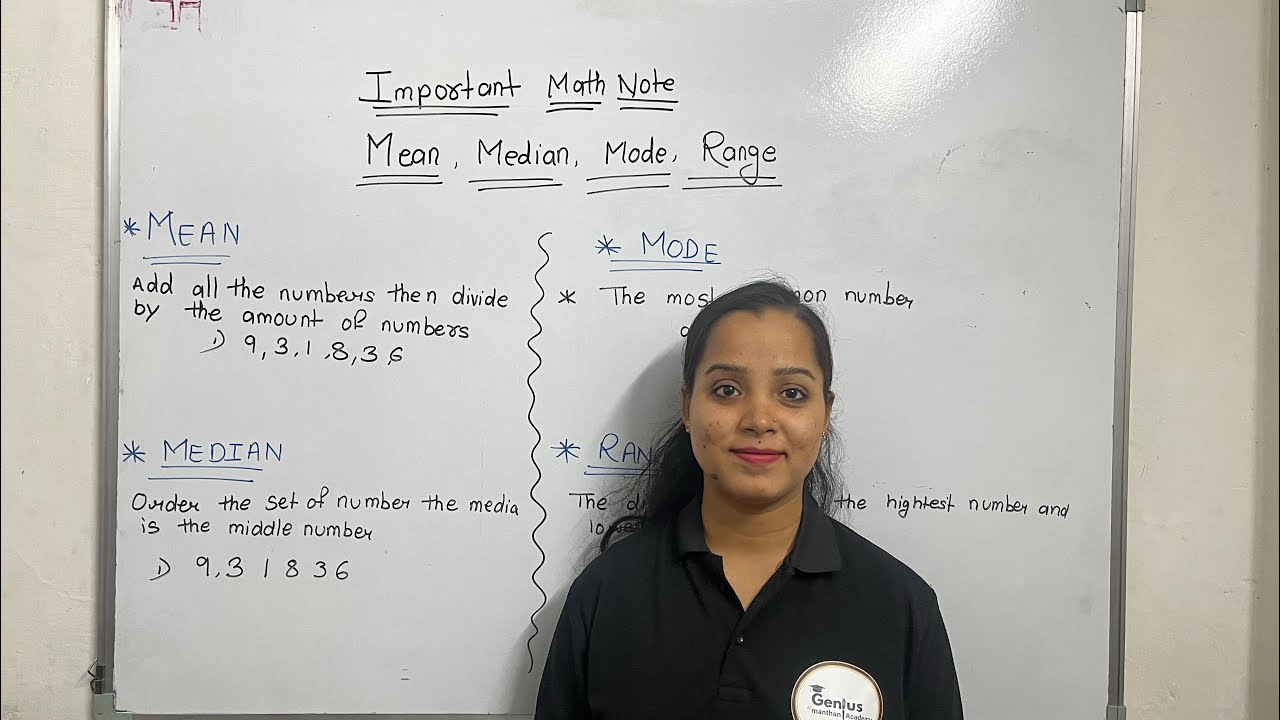 Important Math Note
Mean, Median, Mode, Range
* MEAN
Add all the numbers then divide
by the amount of numbers
1) 9, 3, 1, 8, 3, 6
* MEDIAN
Order the set of number the media
is the middle number
1) 9, 3 1 8 3 6
* MODE
* The most number
* RAN
The the hightest number and
Genius
manthan Academy